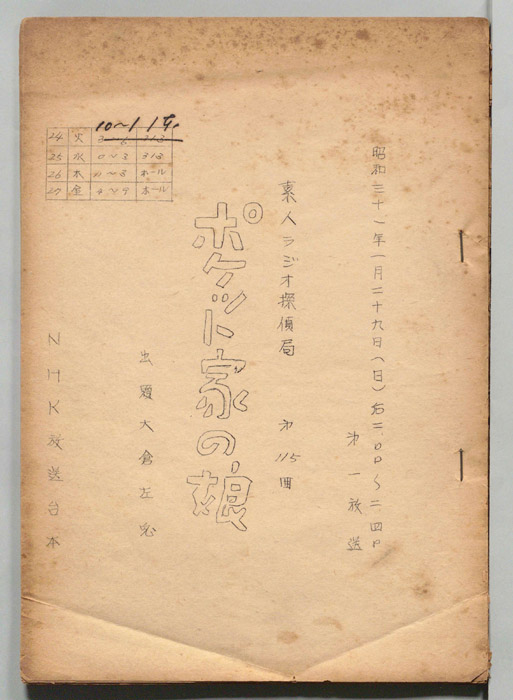 昭和三十一年一月二十九日(日)后二.〇〇〜二四〇
第一放送
素人ラジオ探偵局 第115回
ポケット家の娘
出題 大倉左兎
NHK放送台本
10〜1 1午
24 火 313
25 水 0〜3 313
26 木 ホール
27 金 ホール